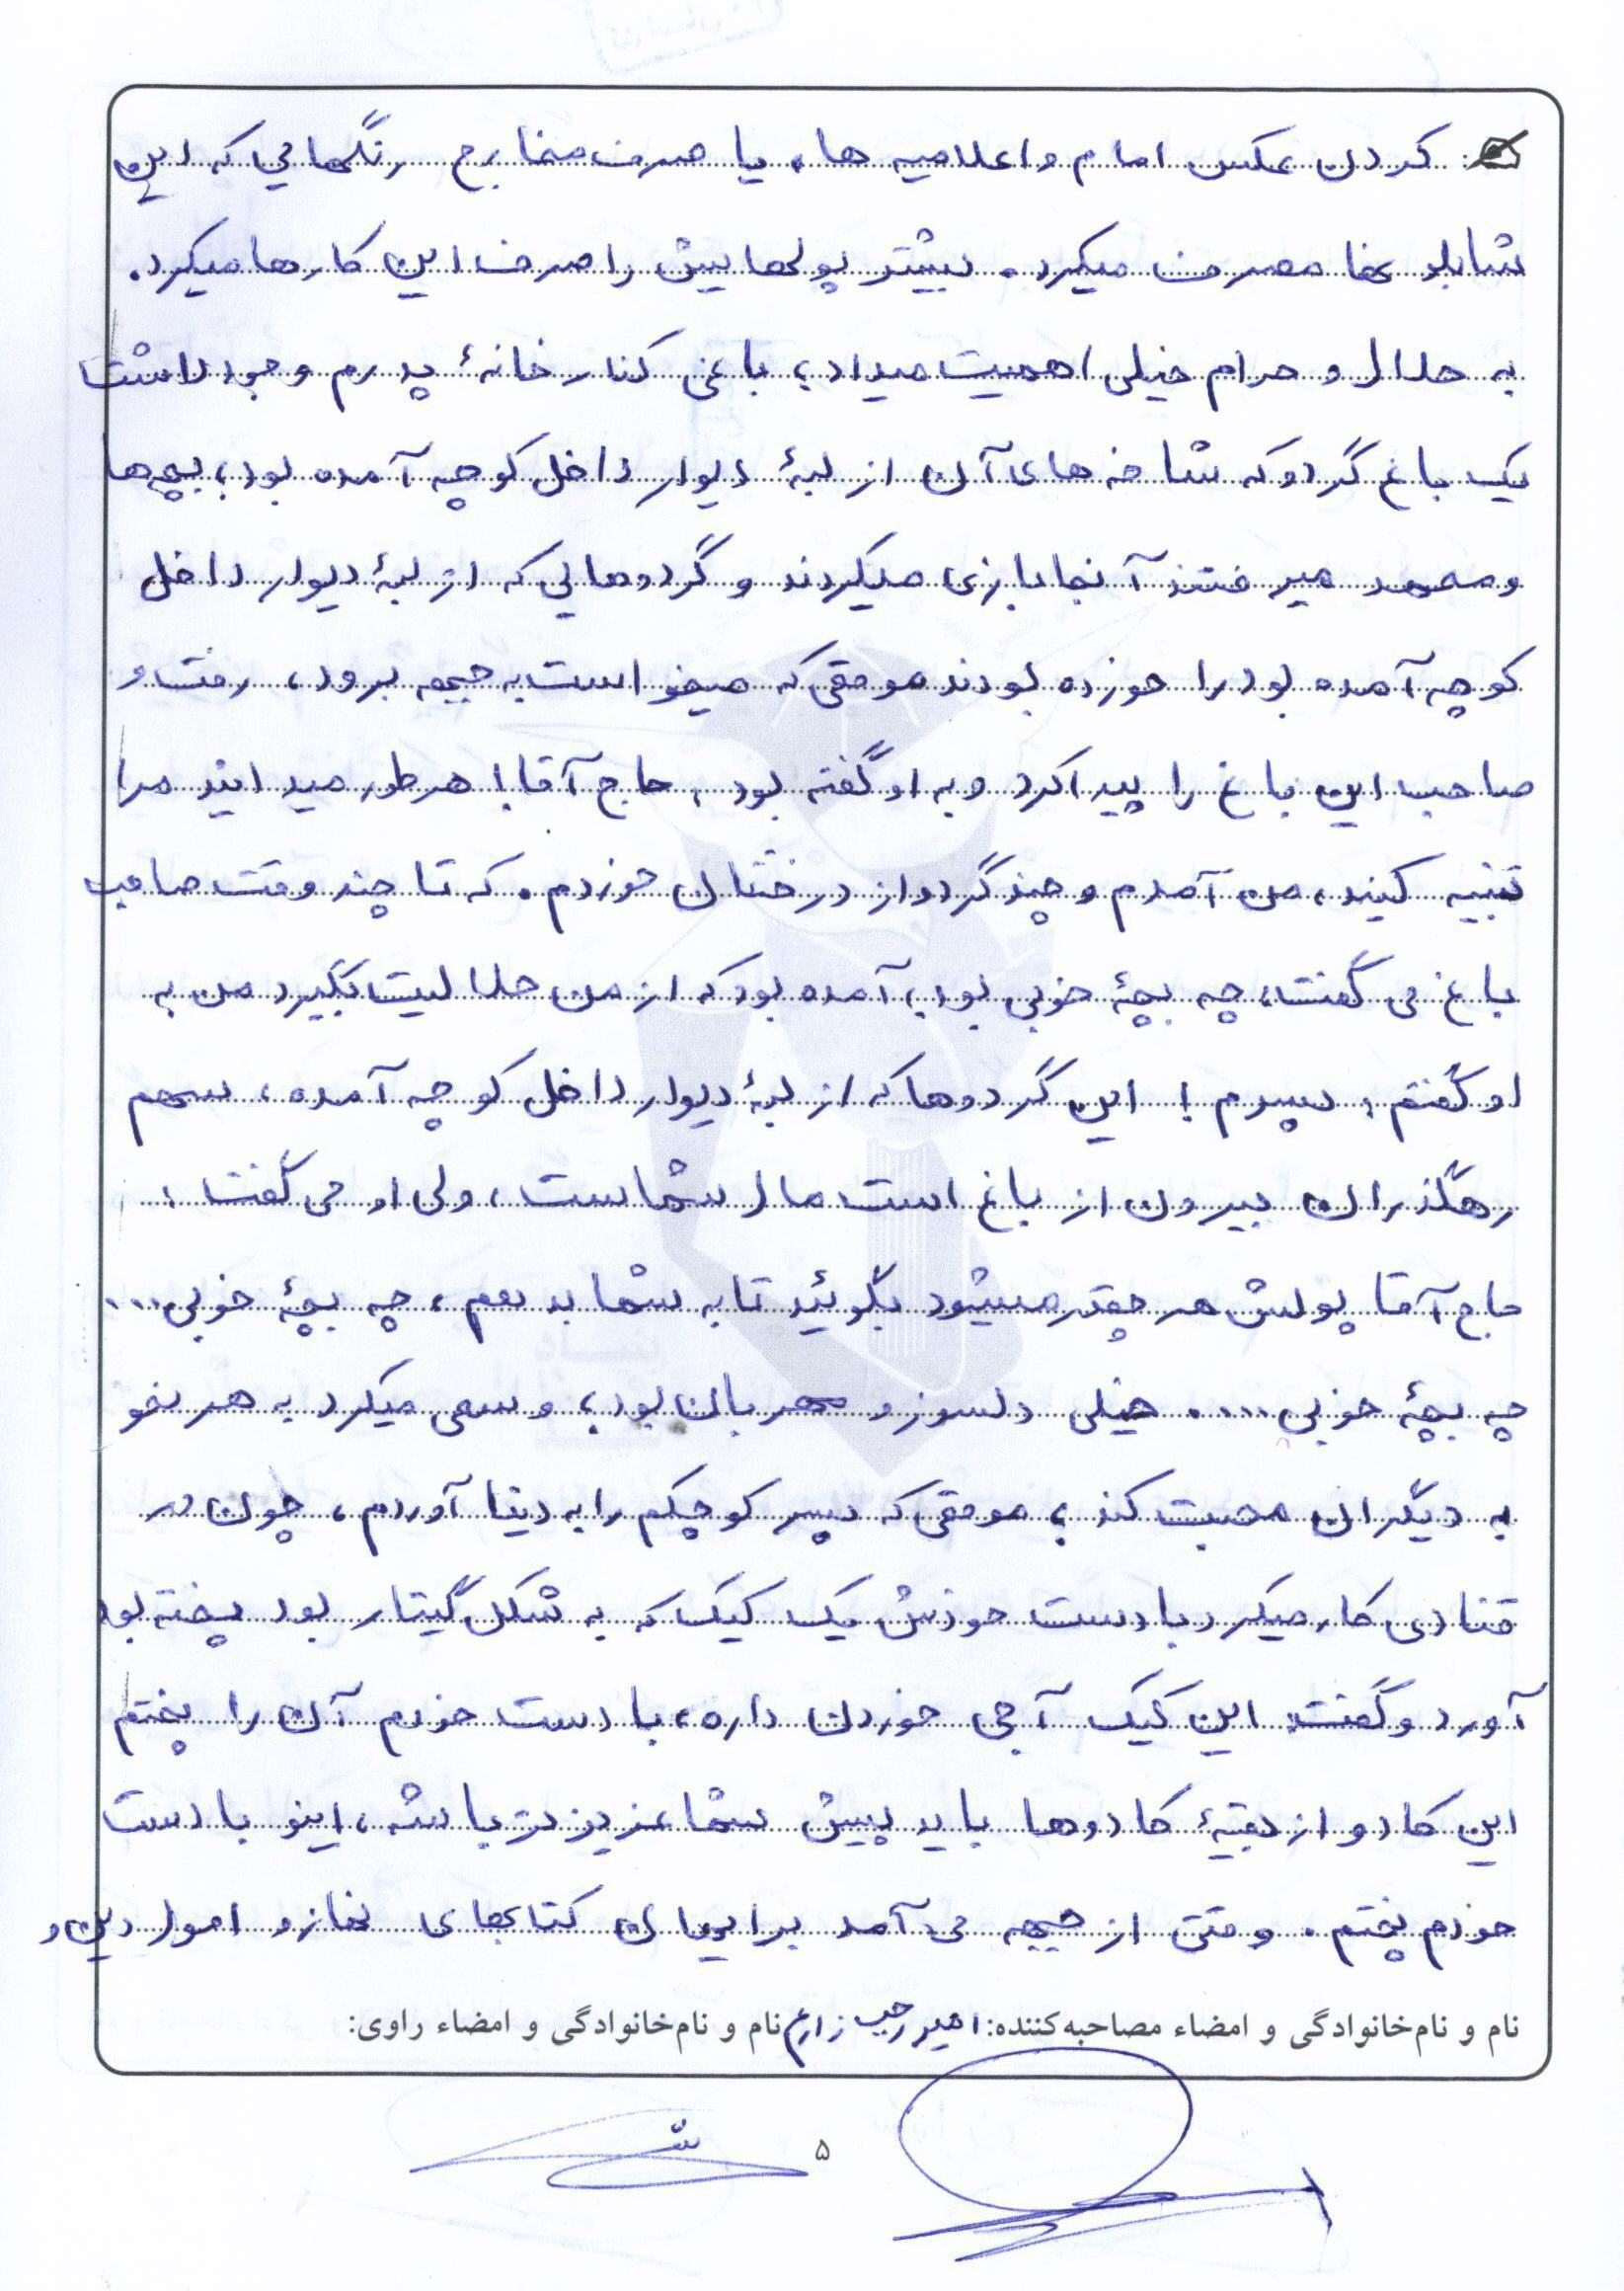 کردن عکس امام و اعلامیه ها، یا صرف مخارج رنگهایی که این
شابلو نها مصرف میکرد. بیشتر پولهایش را صرف این کارها میکرد.
به حلال و حرام خیلی اهمیت میداد؛ باغی کنار خانهٔ پدرم وجود داشت
یک باغ گردو که شاخه های آن از لبهٔ دیوار داخل کوچه آمده بود؛ بچه ها
و محمد میرفتند آنجا بازی میکردند و گردوهایی که از لبهٔ دیوار داخل
کوچه آمده بود را خورده بودند موقعی که میخواست به جبهه برود، رفت و
صاحب این باغ را پیدا کرد و به او گفته بود، حاج آقا! هر طور میدانید مرا
تنبیه کنید، من آمدم و چند گردو از درختتان خوردم. که تا چند وقت صاحب
باغ می گفت، چه بچهٔ خوبی بود؛ آمده بود که از من حلالیت بگیرد من به
او گفتم، پسرم! این گردوها که از لبهٔ دیوار داخل کوچه آمده، سهم
رهگذران بیرون از باغ است مال شماست، ولی او می گفت،
حاج آقا پولش هر چقدر میشود بگوئید تا به شما بدهم، چه بچهٔ خوبی...
چه بچهٔ خوبی.... خیلی دلسوز و مهربان بود؛ و سعی میکرد به هر نحو
به دیگران محبت کند؛ موقعی که پسر کوچکم را به دنیا آوردم، چون در
قنادی کار میکرد با دست خودش یک کیک که به شکل گیتار بود پخته بود
آورد و گفت: این کیک آجی خوردن داره، با دست خودم آن را پختم
این کادو از بقیهٔ کادوها باید پیش شما عزیزتر باشه، اینو با دست
خودم پختم. وقتی از جبهه می آمد برایمان کتابهای نماز و اصول دین و
نام و نام‌خانوادگی و امضاء مصاحبه‌کننده: امیر رجب زارع نام و نام‌خانوادگی و امضاء راوی:
۵